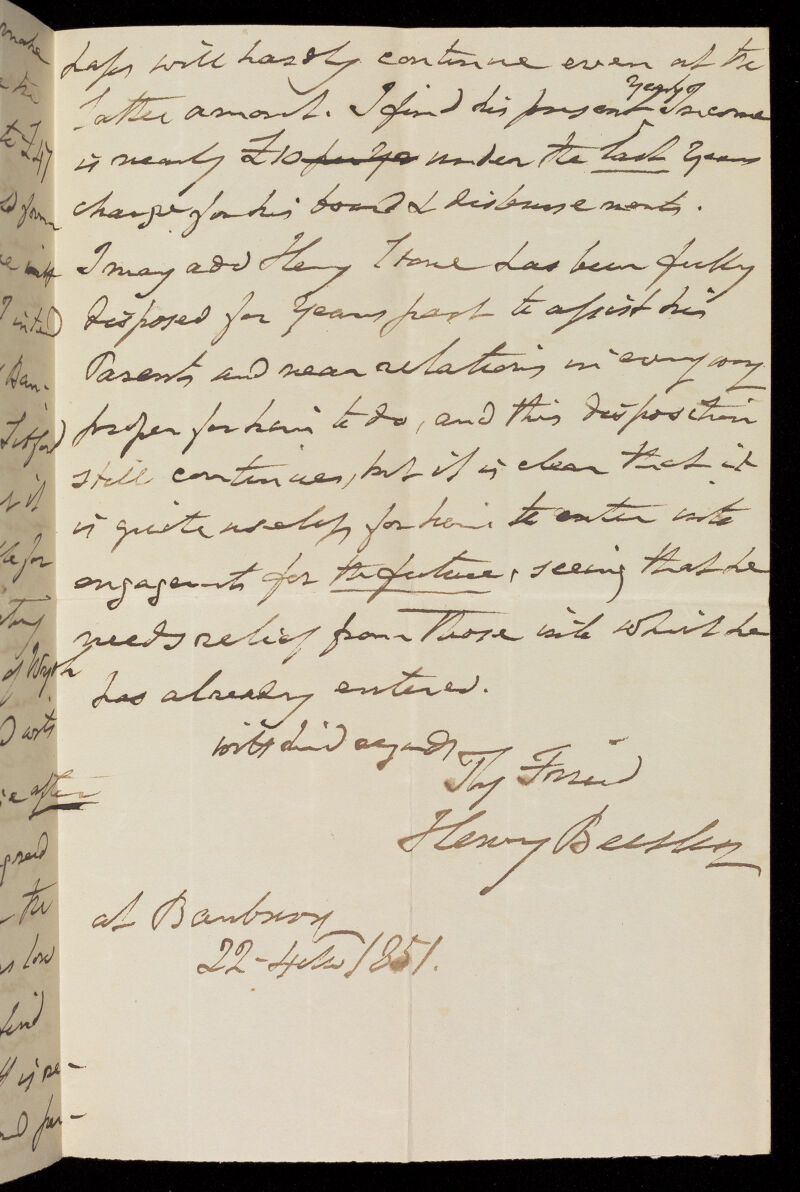 make
the
£47
form
with
I intend
Ban-
it
for
of Wyth
after
agreed
the
low
find
is re-
and per-
haps will hardly continue even at the
latter amount. I find his present yearly Income
is nearly £10 per ye under the last Years
charge for his board & disbursements.
I may add Henry Stone has been fully
disposed for years past to assist his
Parents and near relations in every way
proper for him to do, and this disposition
still continues, but it is clear that it
is quite useless for him to enter into
engagements for the future, seeing that he
needs relief from those into which he
has already entered.
with kind regards
Thy Friend
Henry Beesley
at Banbury
22-4th/1851.